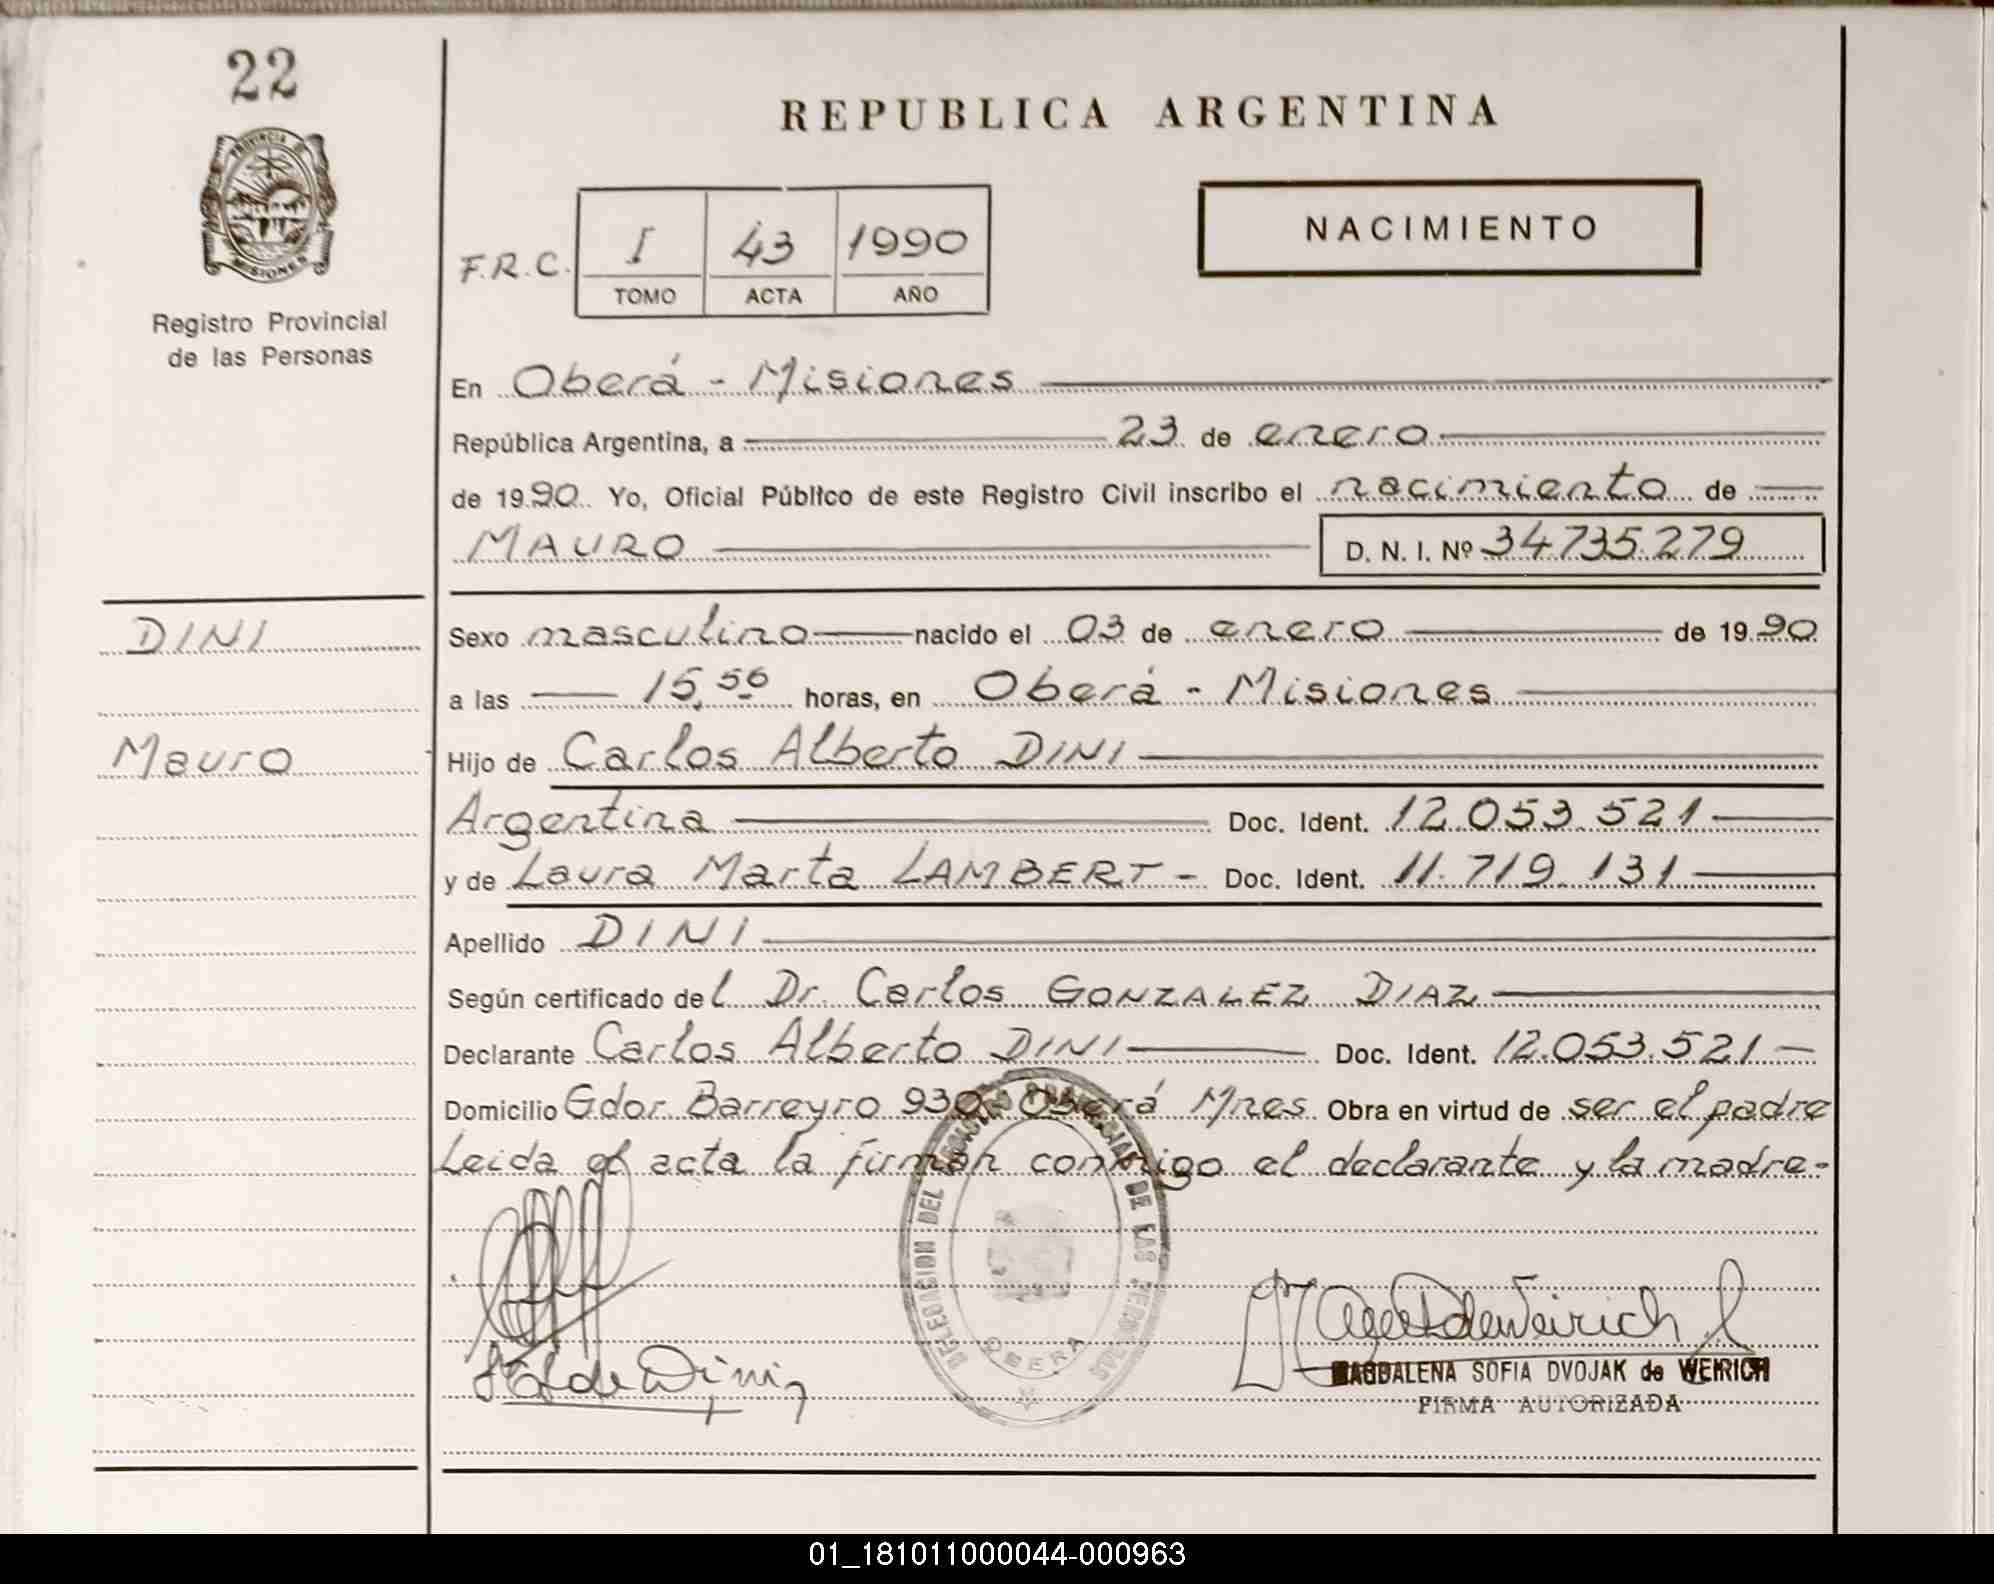 22
REPUBLICA ARGENTINA
PROVINCIA DE MISIONES
Registro Provincial
de las Personas
F.R.C. I 43 1990
TOMO ACTA AÑO
NACIMIENTO
En Oberá - Misiones
República Argentina, a 23 de enero
de 1990 Yo, Oficial Público de este Registro Civil inscribo el nacimiento de
MAURO D. N. I. Nº 34.735.279
DINI
Sexo masculino nacido el 03 de enero de 1990
a las 15,56 horas, en Oberá - Misiones
Mauro
Hijo de Carlos Alberto DINI
Argentina Doc. Ident. 12.053.521
y de Laura Marta LAMBERT - Doc. Ident. 11.719.131
Apellido DINI
Según certificado del Dr. Carlos GONZALEZ DIAZ
Declarante Carlos Alberto DINI Doc. Ident. 12.053.521
Domicilio Gdor Barreyro 930 Oberá Mnes Obra en virtud de ser el padre
Leida el acta la firman conmigo el declarante y la madre-
DELEGACION DEL REGISTRO PROVINCIAL DE LAS PERSONAS
OBERA
de Dini
MAGDALENA SOFIA DVOJAK de WEIRICH
FIRMA AUTORIZADA
01_181011000044-000963